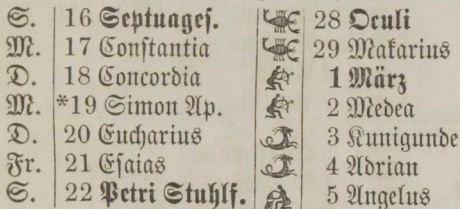 S. 16 Septuages. 28 Oculi
M. 17 Conſtantia 29 Makarius
D. 18 Concordia 1 März
M. *19 Simon Ap. 2 Medea
D. 20 Eucharius 3 Kunigunde
Fr. 21 Eſaias 4 Adrian
S. 22 Petri Stuhlf. 5 Angelus